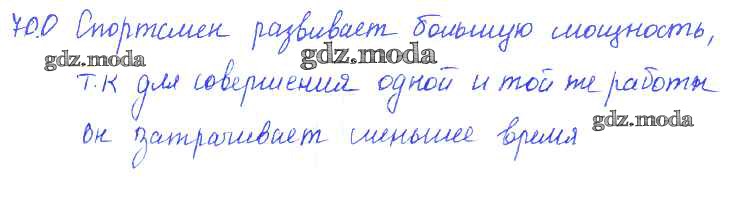 700 Спортсмен развивает большую мощность,
gdz.moda gdz.moda
т.к для совершения одной и той же работы
он затрачивает меньшее время
gdz.moda